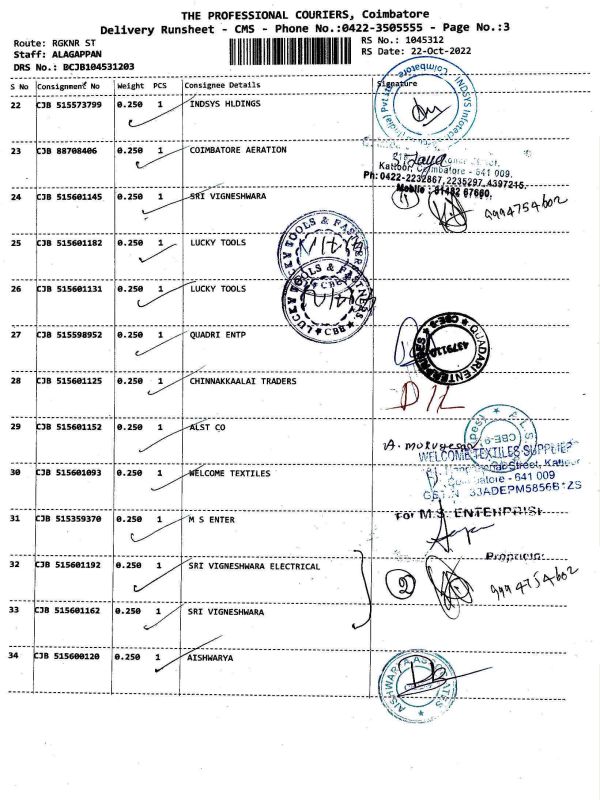 THE PROFESSIONAL COURIERS, Coimbatore
Delivery Runsheet - CMS - Phone No.:0422-3505555 - Page No.:3
Route: RGKNR ST
RS No.: 1045312
Staff: ALAGAPPAN
RS Date: 22-Oct-2022
DRS No.: BCJB104531203
S No Consignment No Weight PCS Consignee Details Signature
22 CJB 515573799 0.250 1 INDSYS HLDINGS
Coimbatore
INDSYS Infotech (India) Pvt
23 CJB 88708406 0.250 1 COIMBATORE AERATION
Kattoor, Coimbatore - 641 009.
Ph: 0422-2232867, 2235297, 4397215.
24 CJB 515601145 0.250 1 SRI VIGNESHWARA
Mobile :
1 9994754602
25 CJB 515601182 0.250 1 LUCKY TOOLS
LUCKY TOOLS & FASTNERS
26 CJB 515601131 0.250 1 LUCKY TOOLS
LUCKY TOOLS & FASTNERS CBE
27 CJB 515598952 0.250 1 QUADRI ENTP
QUADARI ENTERPRISES CBE-9
28 CJB 515601125 0.250 1 CHINNAKKAALAI TRADERS
29 CJB 515601152 0.250 1 ALST CO
CBE-9
A. murugesan
WELCOME TEXTILES SUPPLIER
30 CJB 515601093 0.250 1 WELCOME TEXTILES
Street, Kattoor
Coimbatore - 641 009
33ADEPM5856B1ZS
31 CJB 515359370 0.250 1 M S ENTER
For M.S. ENTERPRISE
Proprietor
32 CJB 515601192 0.250 1 SRI VIGNESHWARA ELECTRICAL
2 9994754602
33 CJB 515601162 0.250 1 SRI VIGNESHWARA
34 CJB 515600120 0.250 1 AISHWARYA
AISHWARYA ASSOCIATES